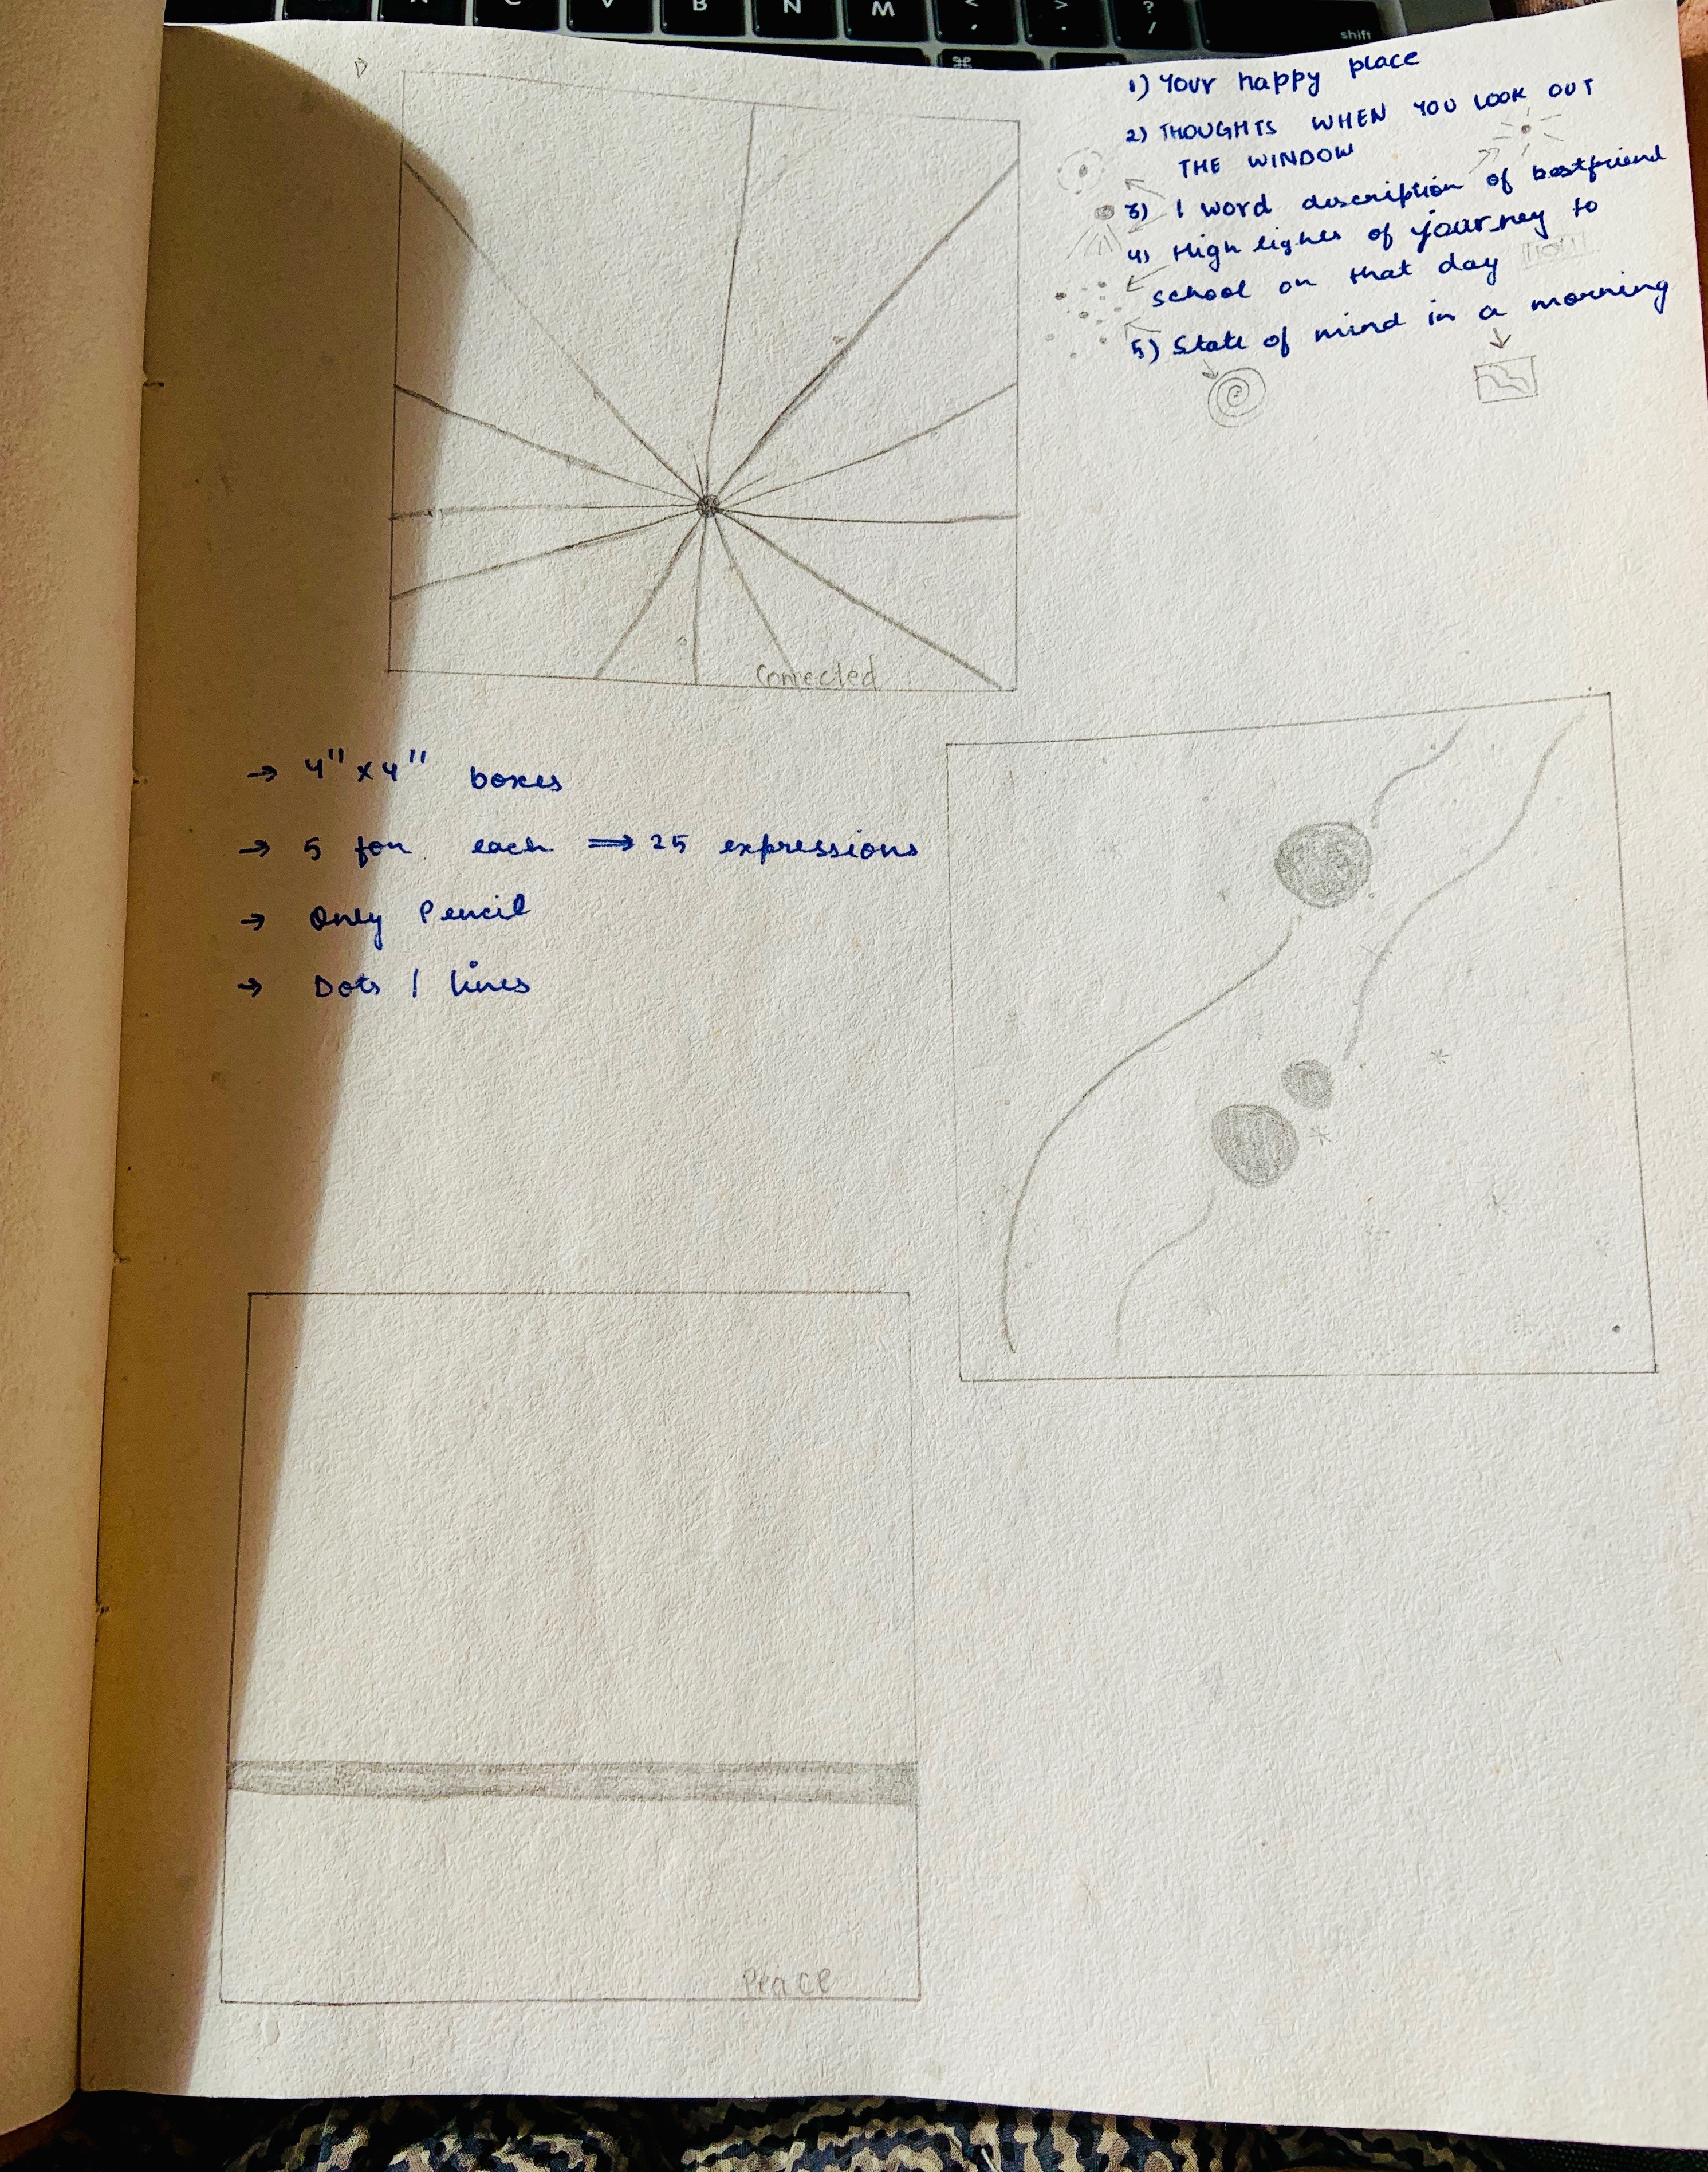 X C V B N M < > ? /
shift
⌘
1) Your happy place
2) THOUGHTS WHEN YOU LOOK OUT
THE WINDOW
3) 1 word description of bestfriend
4) High lights of journey to
school on that day
5) State of mind in a morning
Connected
→ 4" x 4" boxes
→ 5 for each ⇒ 25 expressions
→ Only Pencil
→ Dots / lines
Peace